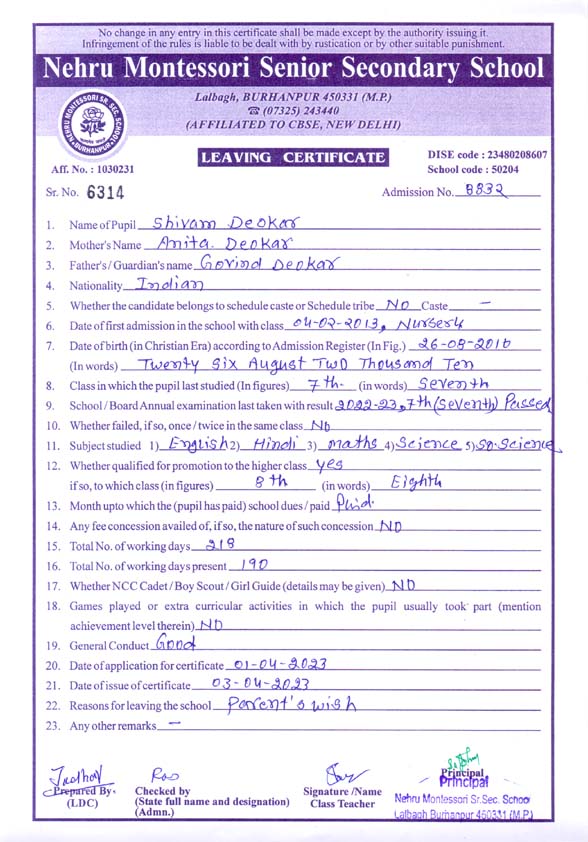 No change in any entry in this certificate shall be made except by the authority issuing it.
Infringement of the rules is liable to be dealt with by rustication or by other suitable punishment.
Nehru Montessori Senior Secondary School
Lalbagh, BURHANPUR 450331 (M.P.)
☎ (07325) 243440
(AFFILIATED TO CBSE, NEW DELHI)
NEHRU MONTESSORI SR. SEC. SCHOOL
BURHANPUR
LEAVING CERTIFICATE
DISE code : 23480208607
Aff. No. : 1030231 School code : 50204
Sr. No. 6314 Admission No. 8832
1. Name of Pupil Shivam Deokar
2. Mother's Name Anita Deokar
3. Father's / Guardian's name Govind Deokar
4. Nationality Indian
5. Whether the candidate belongs to schedule caste or Schedule tribe NO Caste –
6. Date of first admission in the school with class 04-02-2013, Nursery
7. Date of birth (in Christian Era) according to Admission Register (In Fig.) 26-08-2010
(In words) Twenty Six August Two Thousand Ten
8. Class in which the pupil last studied (In figures) 7th (in words) Seventh
9. School / Board Annual examination last taken with result 2022-23, 7th (Seventh) Passed
10. Whether failed, if so, once / twice in the same class No
11. Subject studied 1) English 2) Hindi 3) maths 4) Science 5) So. Science
12. Whether qualified for promotion to the higher class yes
if so, to which class (in figures) 8th (in words) Eighth
13. Month upto which the (pupil has paid) school dues / paid Paid.
14. Any fee concession availed of, if so, the nature of such concession NO
15. Total No. of working days 218
16. Total No. of working days present 190
17. Whether NCC Cadet / Boy Scout / Girl Guide (details may be given) NO
18. Games played or extra curricular activities in which the pupil usually took part (mention
achievement level therein) NO
19. General Conduct Good
20. Date of application for certificate 01-04-2023
21. Date of issue of certificate 03-04-2023
22. Reasons for leaving the school Parent's wish
23. Any other remarks –
Prepared By- Checked by Signature /Name Principal
(LDC) (State full name and designation) Class Teacher Principal
(Admn.) Nehru Montessori Sr.Sec. School
Lalbagh Burhanpur 450331 (M.P.)